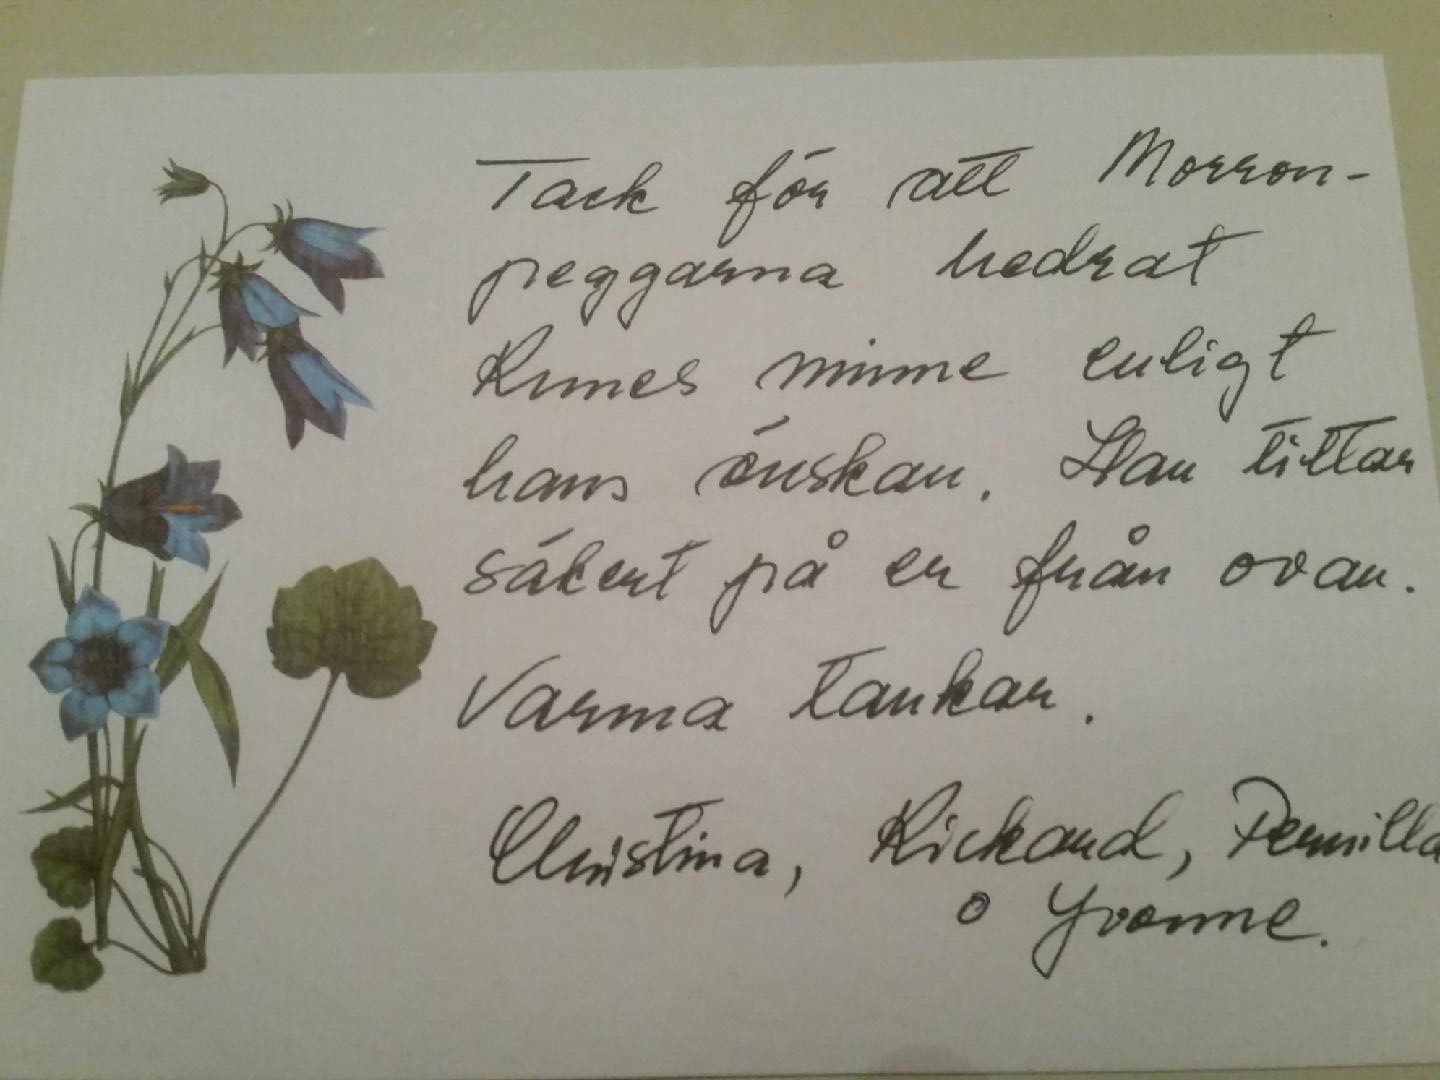 Tack för att Morron-
peggarna hedrat
Runes minne enligt
hans önskan. Han tittar
säkert på er från ovan.
Varma tankar.
Christina, Rickard, Pernilla
o Yvonne.